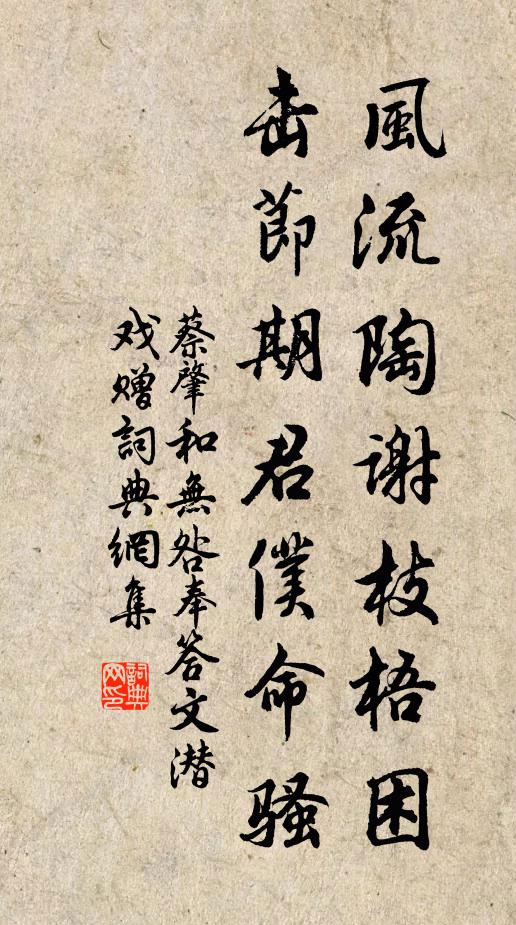 風流陶谢枝梧困
击節期君僕命骚
蔡肇和無咎奉答文潜
戏赠詞典網集
詞典网印